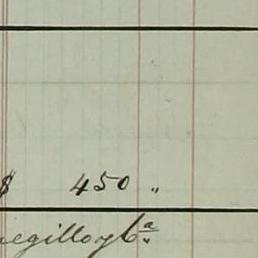 $ 450 "
negillo y Cª